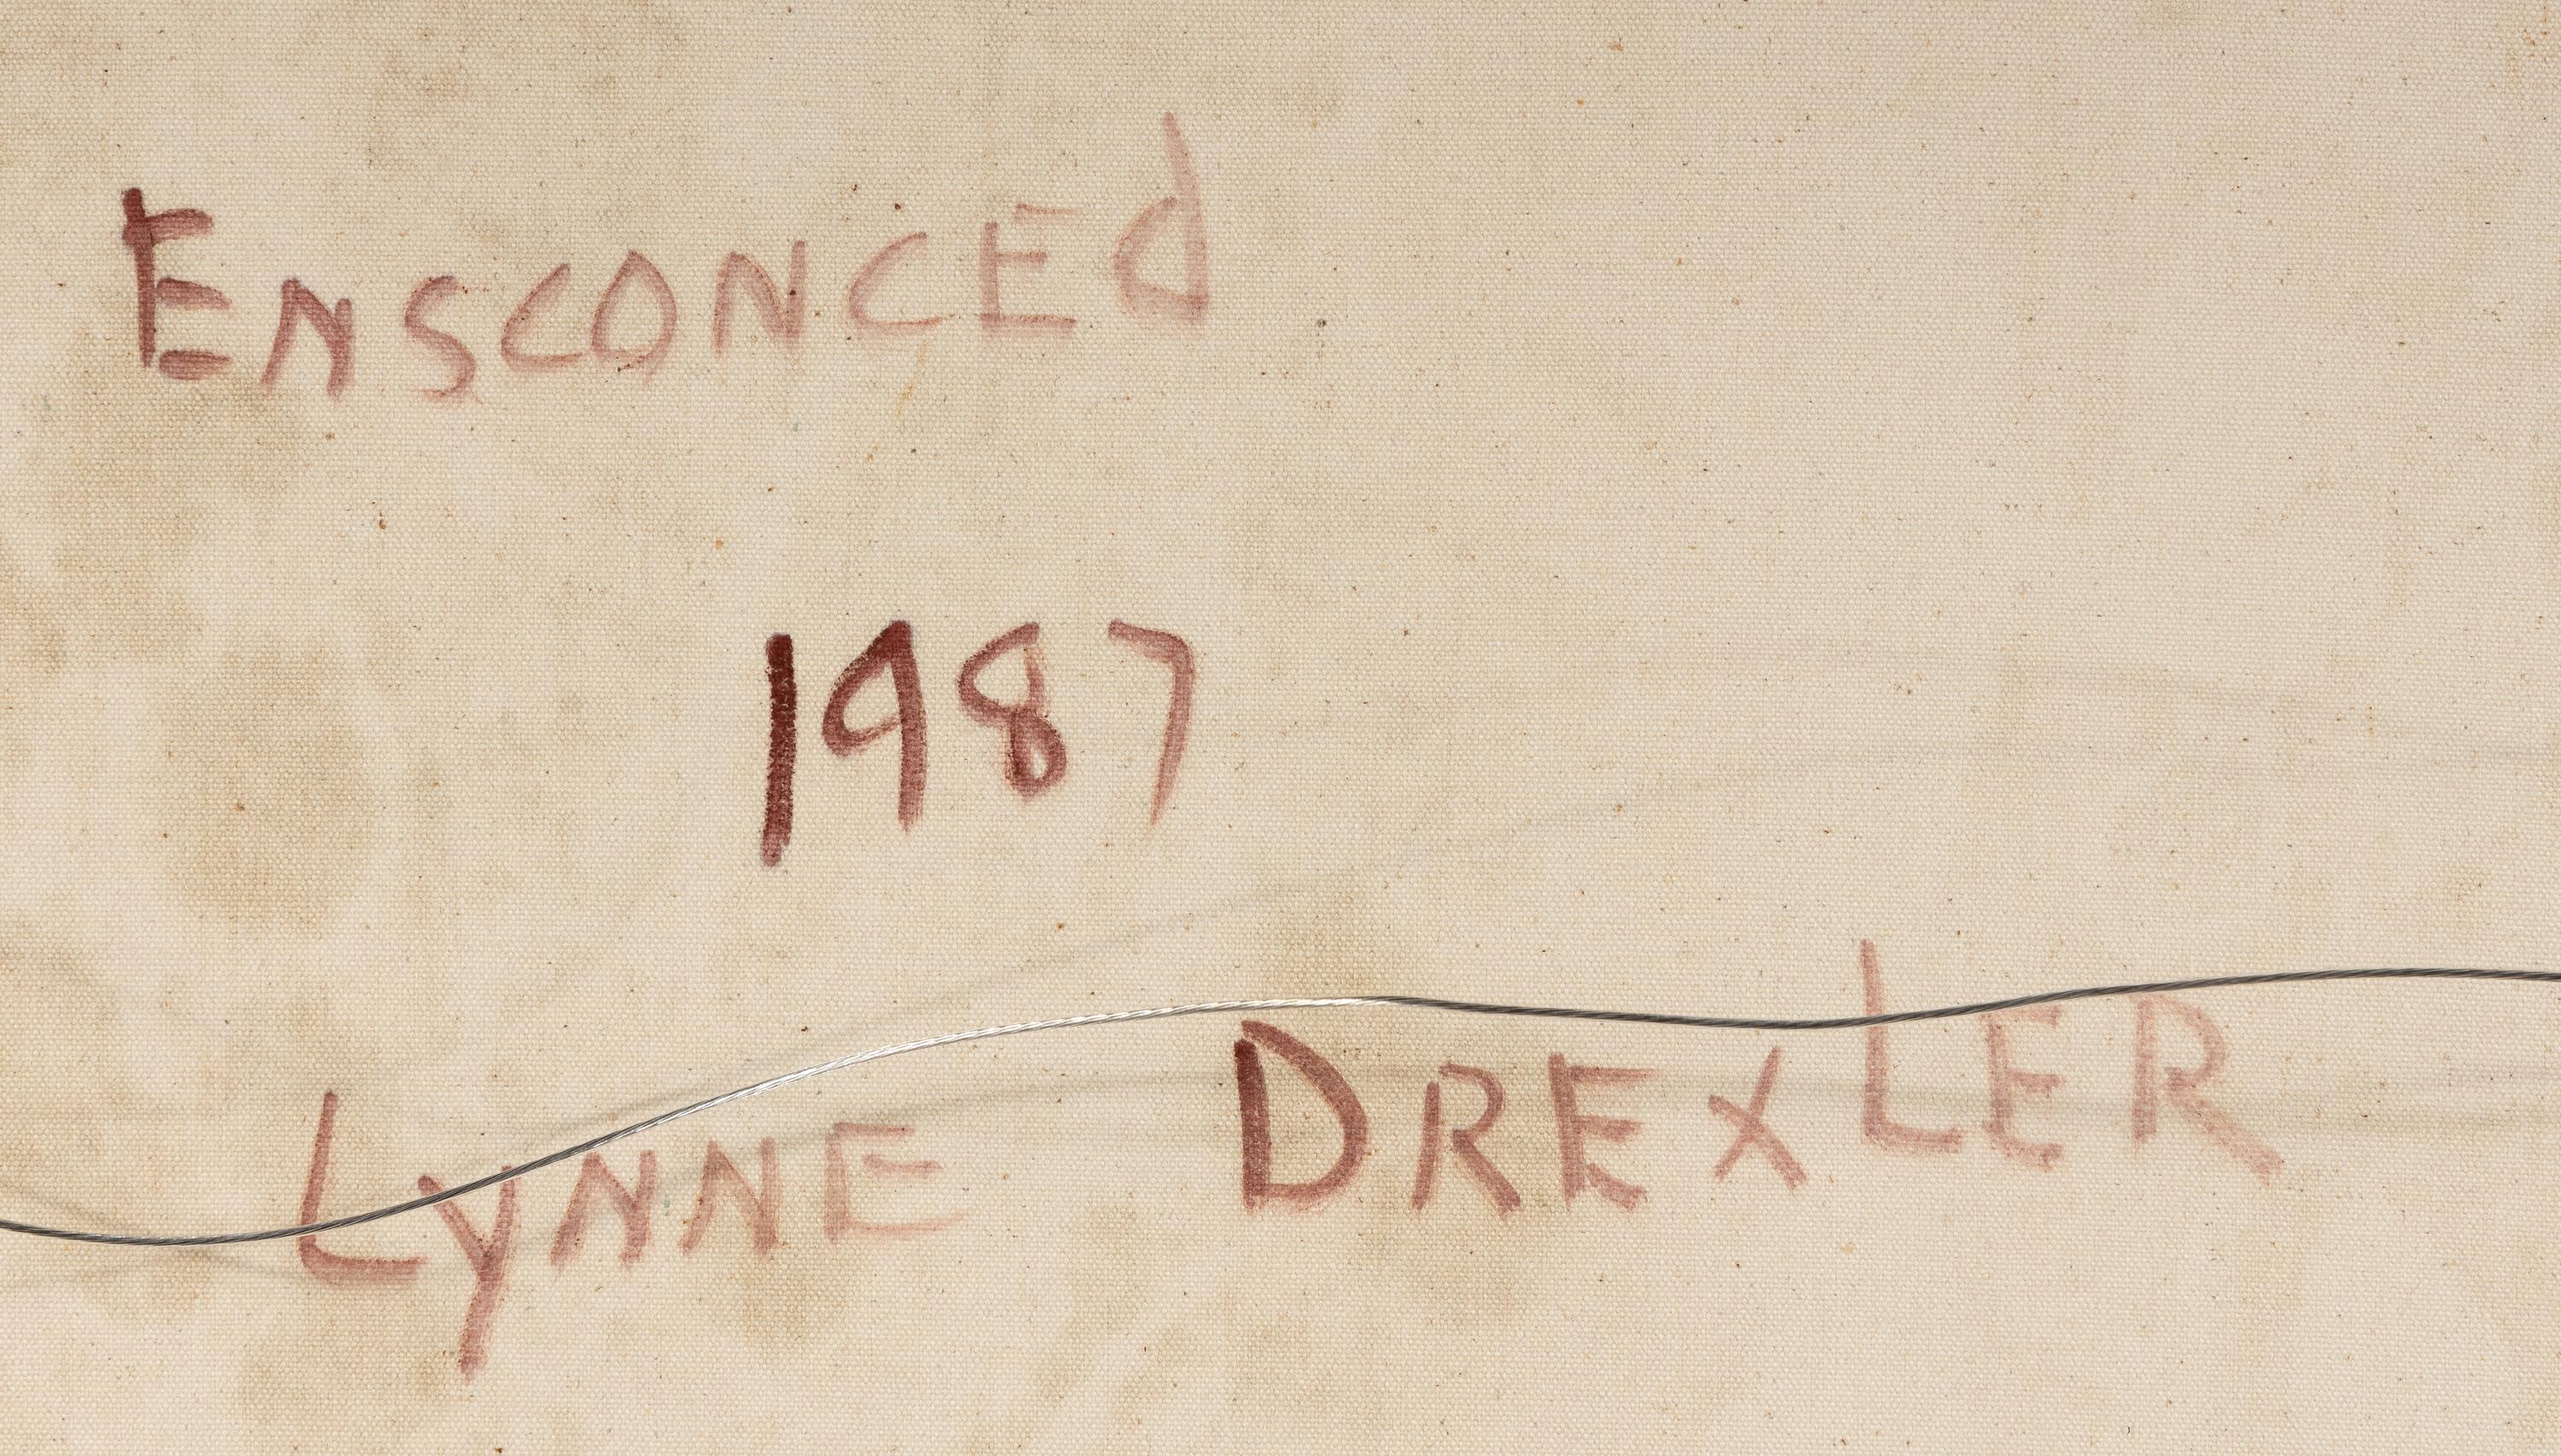 Ensconced
1987
Lynne Drexler